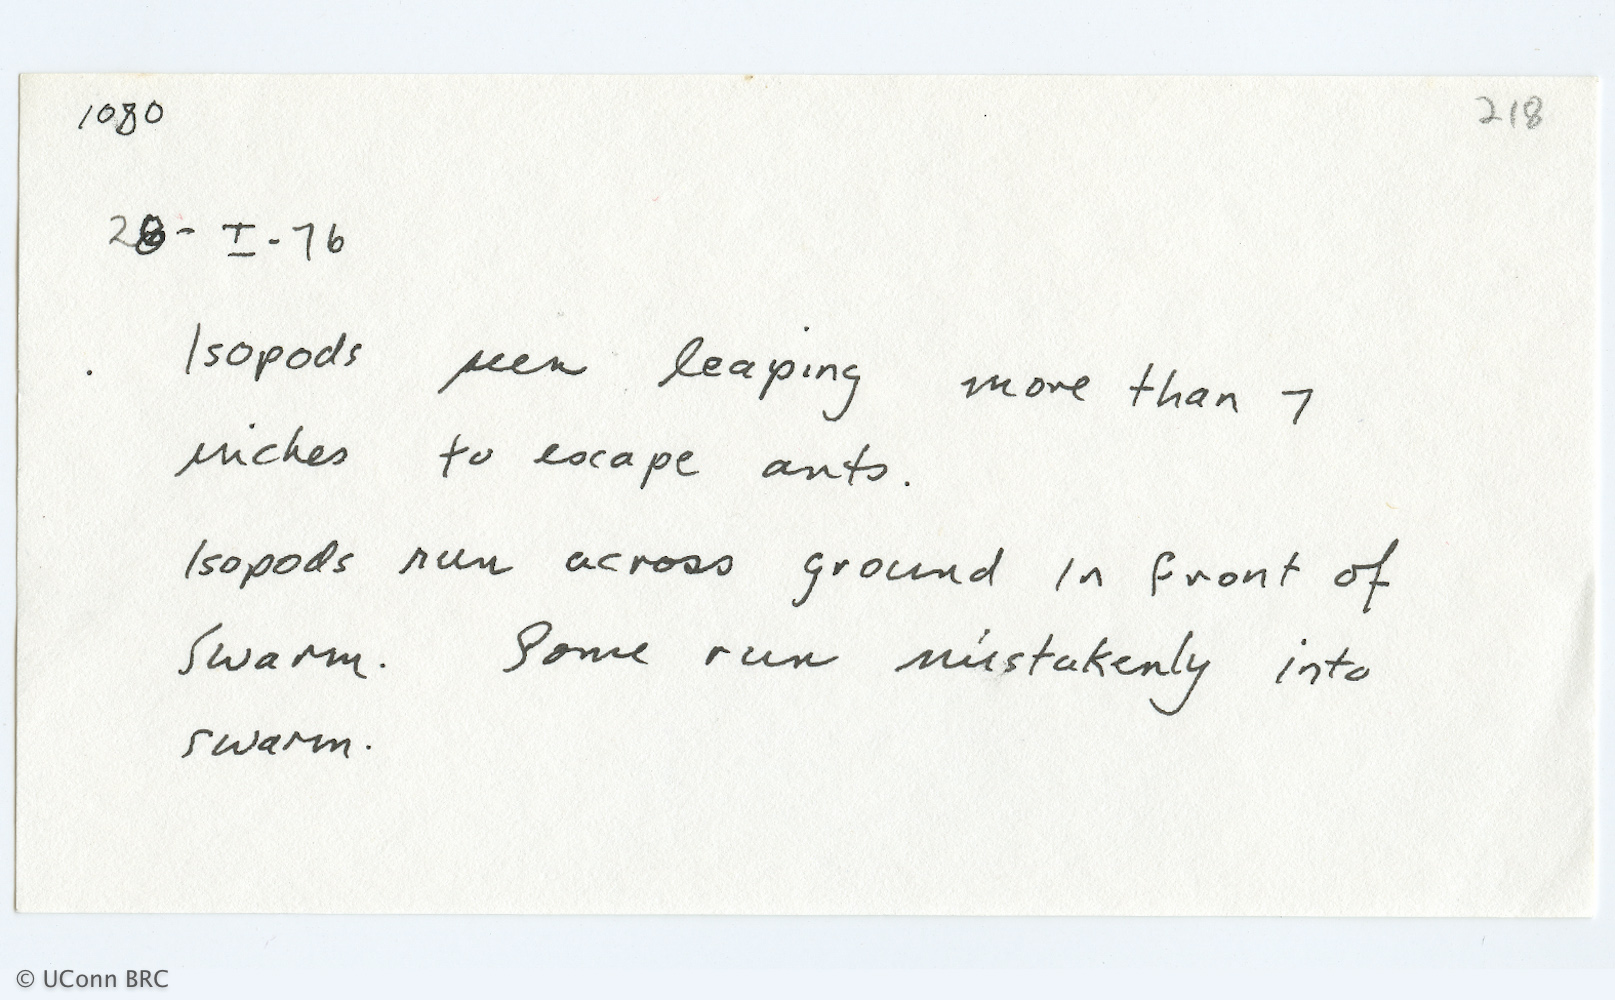 1080
218
28-I-76
Isopods seen leaping more than 7
inches to escape ants.
Isopods run across ground in front of
swarm. Some run mistakenly into
swarm.
© UConn BRC